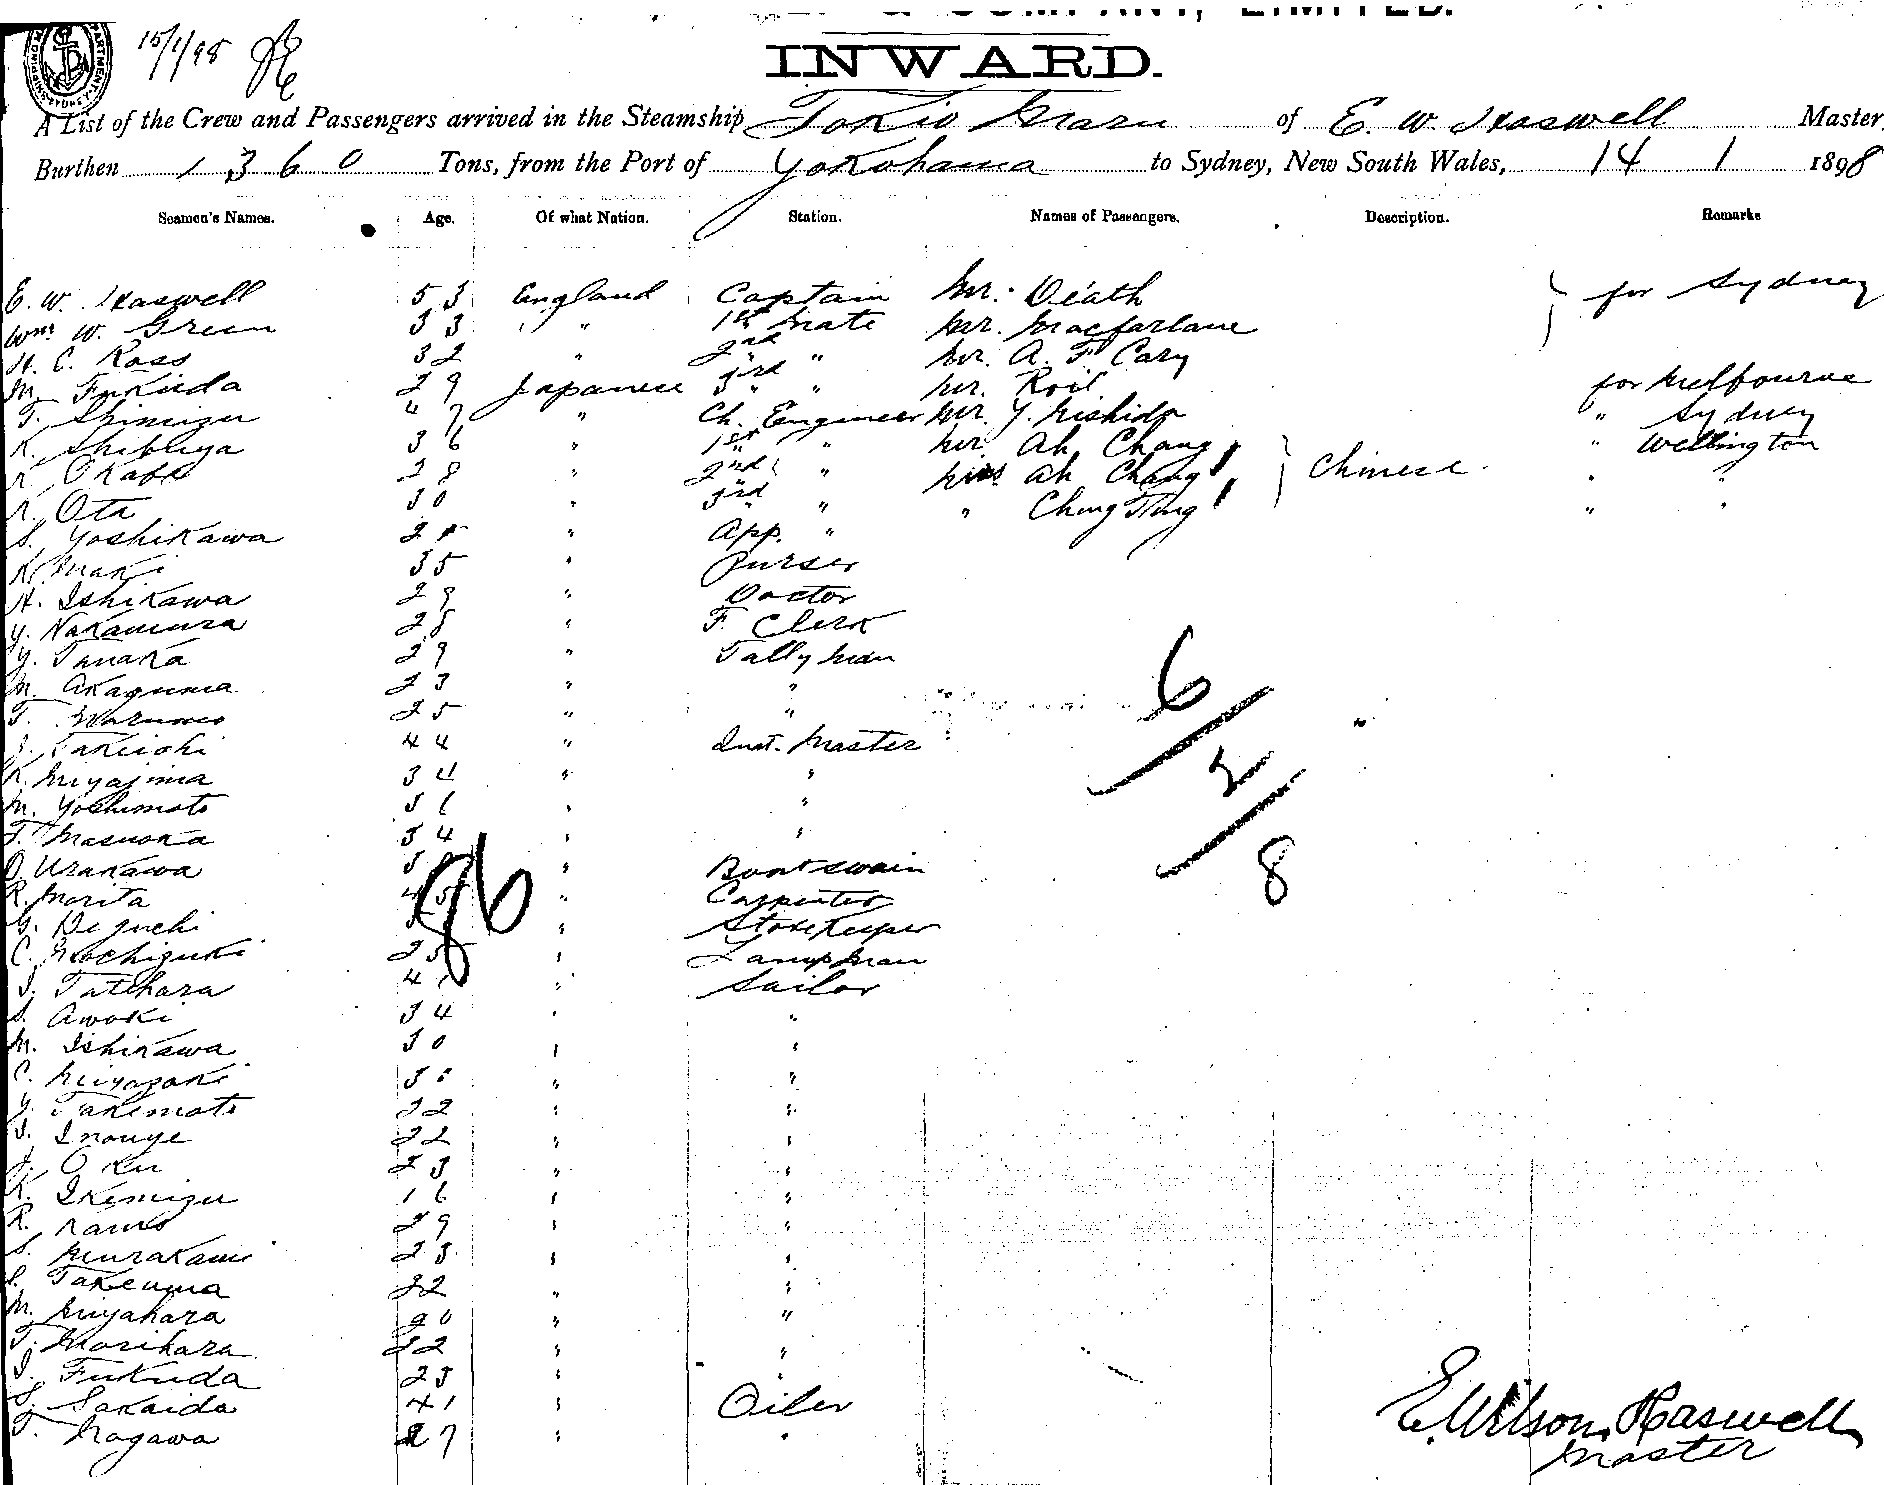 15/1/98
INWARD.
A List of the Crew and Passengers arrived in the Steamship Tokio Maru of E. W. Haswell Master,
Burthen 1360 Tons, from the Port of Yokohama to Sydney, New South Wales, 14 1 1898
Seamen's Names. Age. Of what Nation. Station. Names of Passengers. Description. Remarks
E. W. Haswell 53 England Captain Mr. Death } for Sydney
Wm. W. Green 33 " 1st Mate Mr. Macfarlane
H. C. Ross 32 " 2nd " Mr. A. F. Cary
M. Fukuda 29 Japanese 3rd " Mr. Roil for Melbourne
T. Shimizu 47 " Ch. Engineer Mr. Y. Nishida " Sydney
K. Shibuya 36 " 1st " Mr. Ah Chang } Chinese " Wellington
K. Okabe 28 " 2nd " Mrs Ah Chang " "
K. Ota 30 " 3rd " " Ching Ting " "
S. Yoshikawa " App. "
K. Maki 35 " Purser
H. Ishikawa 29 " Doctor
Y. Nakamura 28 " F. Clerk
Y. Tanaka 29 " Tallyman
M. Akaguma 23 " "
T. 25 " "
Takiichi 44 " Quat. Master
K. Miyajima 34 " "
M. Yoshimoto 36 " "
T. Masuoka 34 " "
O. Urakawa " Boatswain
R. Morita 45 " Carpenter
G. Deguchi " Storekeeper
C. Mochizuki 25 " Lampman
Tatehara " Sailor
S. Awoki 34 " "
M. Ishikawa 30 " "
C. Miyazaki " "
Y. Takemoto 22 " "
Inouye 22 " "
Oku 23 " "
K. Ikemizu 16 " "
R. 29 " "
S. Murakami 23 " "
S. Takeuma 22 " "
M. Miyahara 20 " "
T. Morihara 22 " "
Fukuda 23 " "
S. Sakaida 41 " Oiler
T. Nagawa 27 " "
86
6
2
8
E. Wilson Haswell
Master